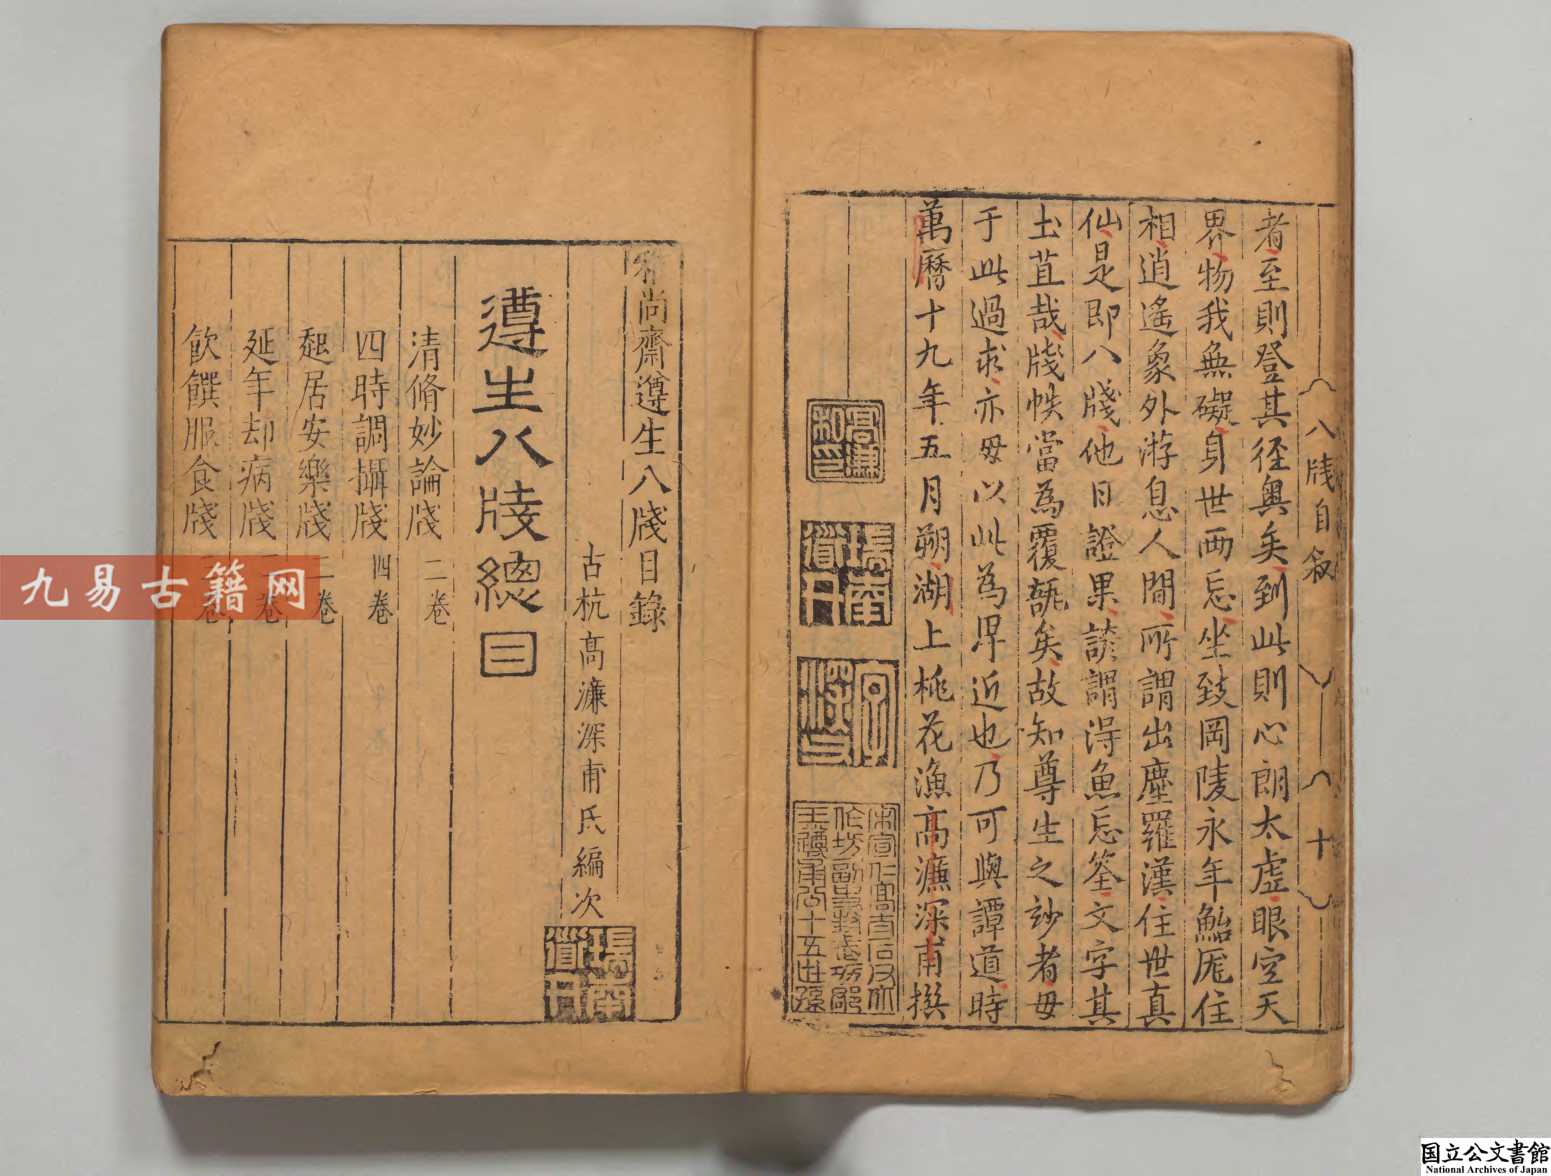 者至則登其徑奧矣到此則心朗太虛眼空天
界物我無礙身世兩忘坐致岡陵永年鮐厖住
相逍遙象外游息人間所謂出塵羅漢住世真
仙是即八牋他日證果談謂得魚忘筌文字其
土苴哉牋帙當為覆瓿矣故知尊生之玅者毋
于此過求亦毋以此為卑近也乃可與譚道時
萬曆十九年五月朔湖上桃花漁高濂深甫撰
八牋自叙
十
高濂
瑞南
道人
雅尚齋遵生八牋目錄
古杭高濂深甫氏編次
瑞南
道人
遵生八牋總目
清脩妙論牋 二卷
四時調攝牋 四卷
起居安樂牋 二卷
延年却病牋 二卷
飲饌服食牋 三卷
九易古籍网
国立公文書館
National Archives of Japan